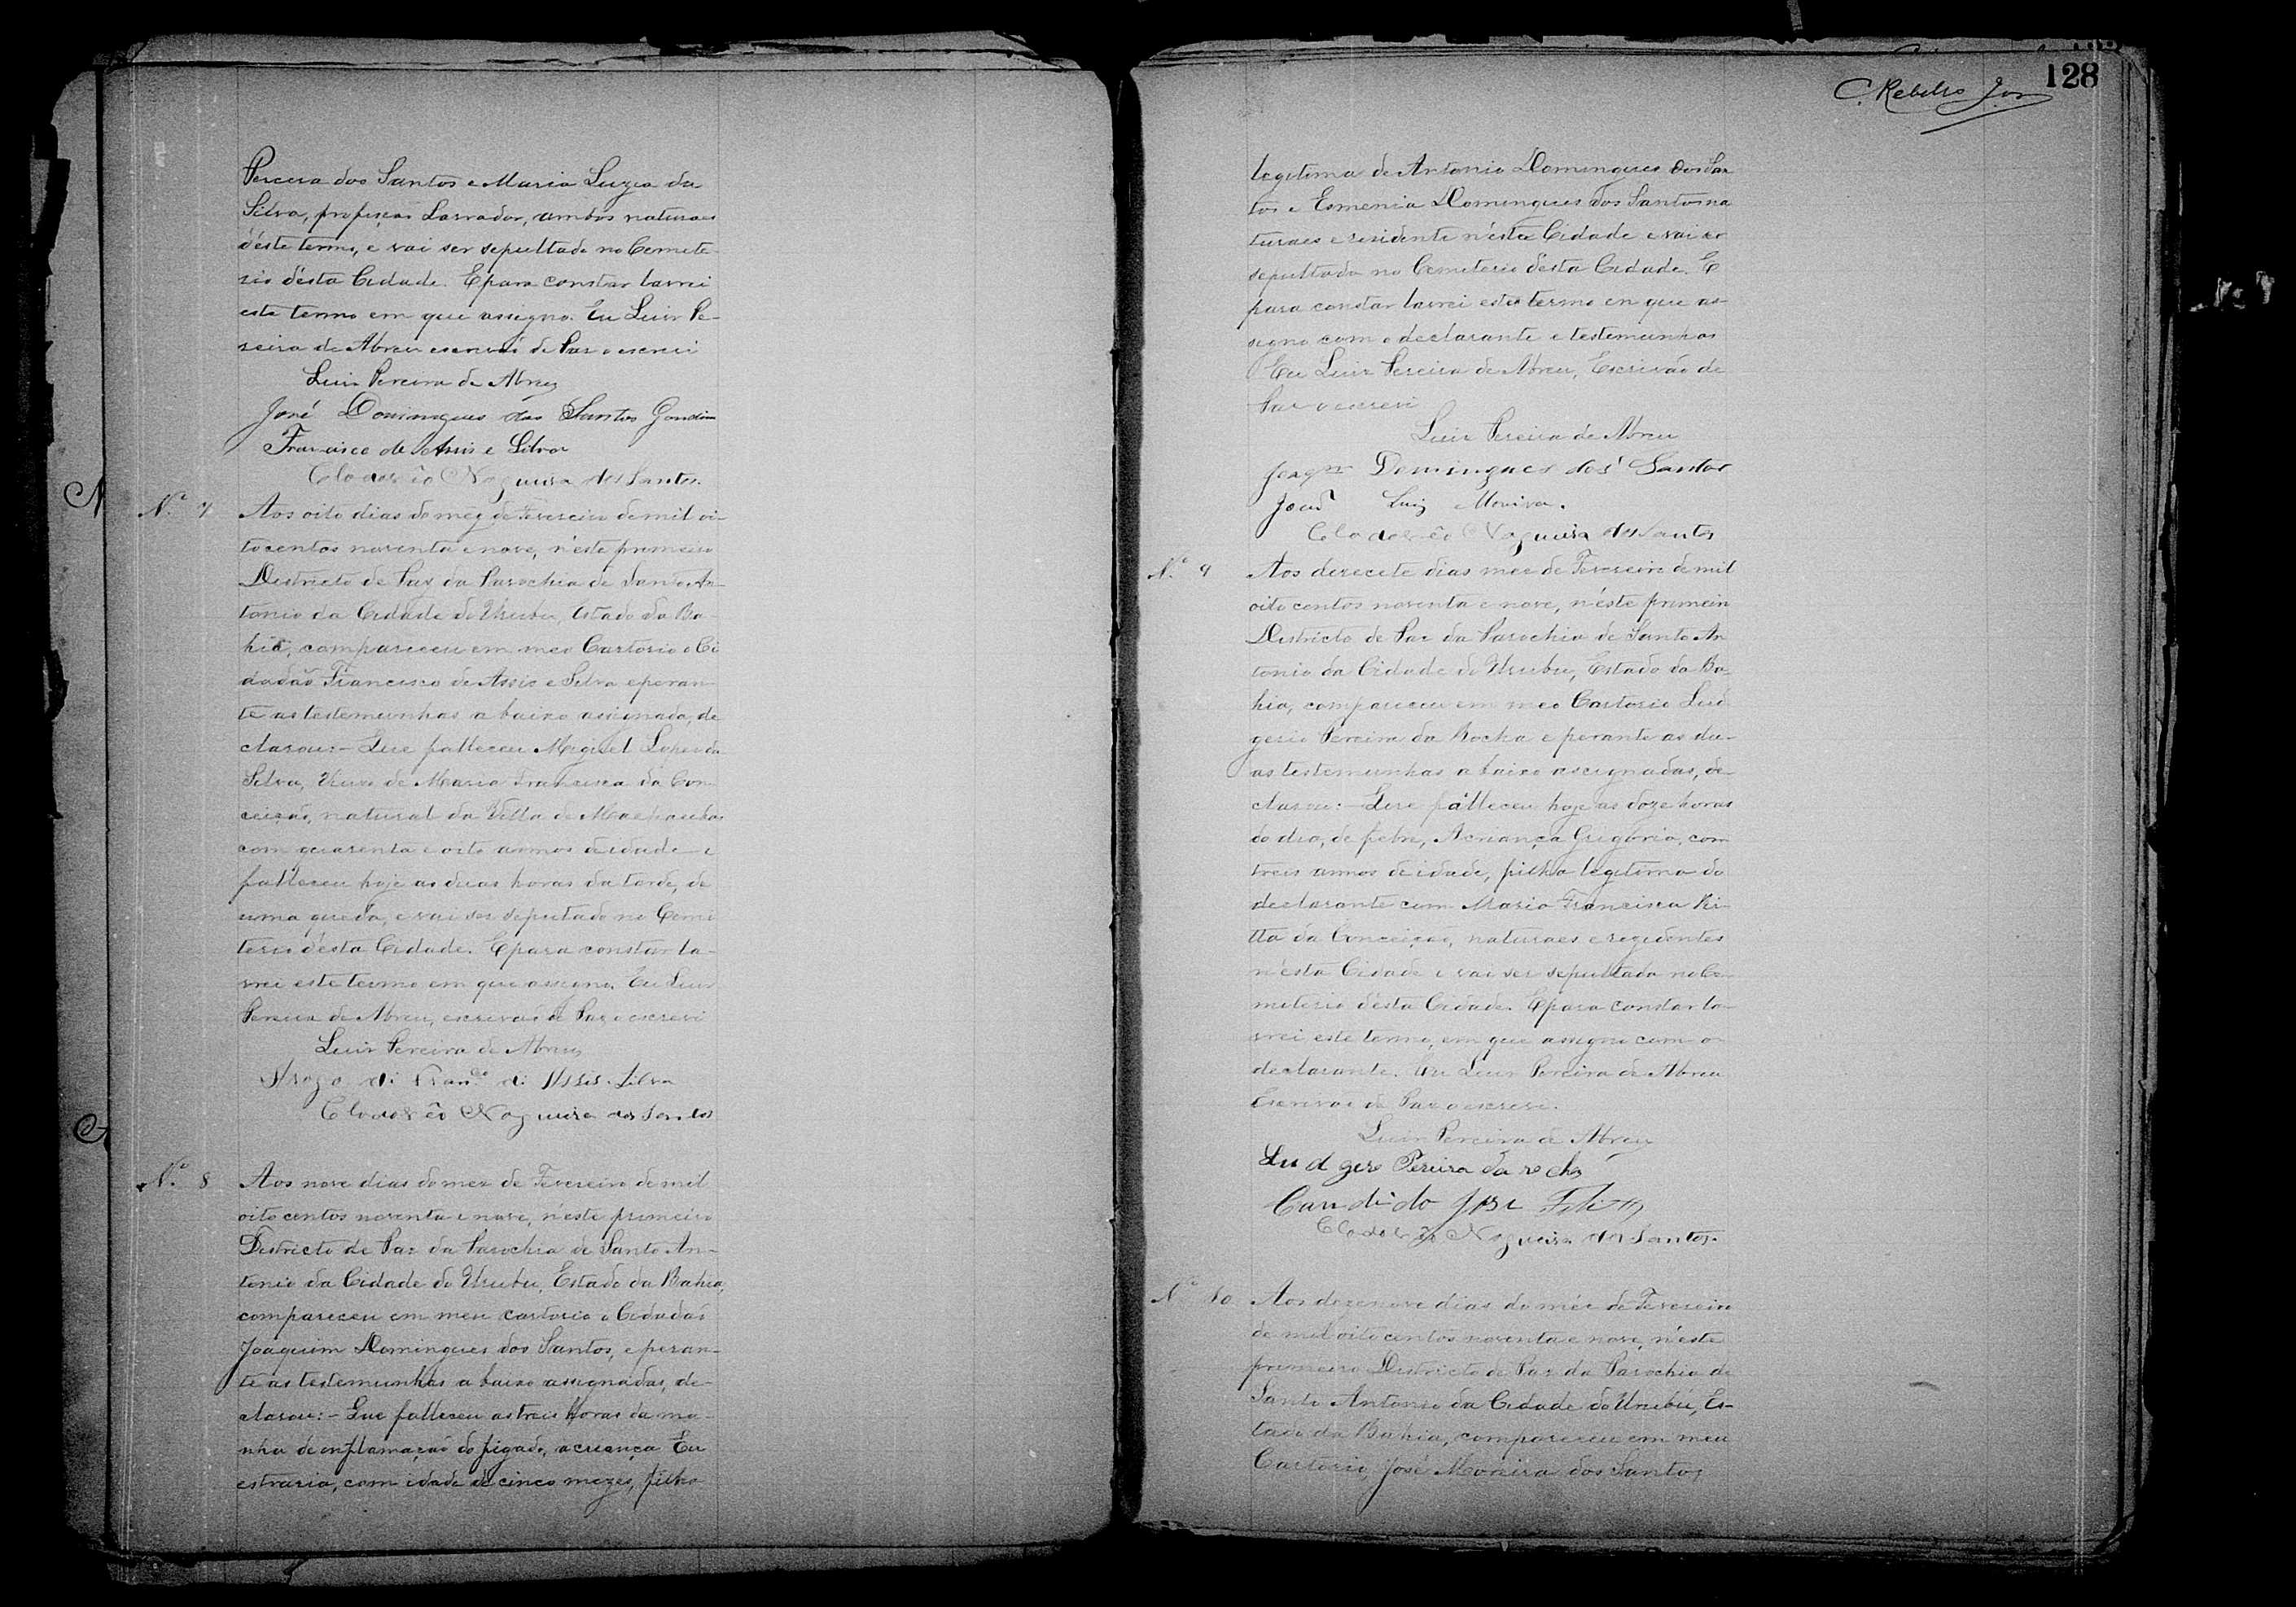 Pereira dos Santos e Maria Luzia da
Silva, profiçaõ Lavrador, ambos naturaes
d'éste termo, e vai ser sepultado no Cemete-
rio d'ésta Cidade. E para constar lavrei
este termo em que assigno. Eu Luiz Pe-
reira de Abreu escrivaõ de Paz o escrevi
Luiz Pereira de Abreu
José Domingues dos Santos Gondim
Francisco de Assis e Silva
Nogueira dos Santos.
Nº 7 Aos oito dias do mez de Fevereiro de mil oi-
tocentos noventa e nove, n'éste primeiro
Districto de Paz da Parochia de Santo An-
tonio da Cidade do Urubu, Estado da Ba-
hia, compareceu em meo Cartorio o Ci
dadaõ Francisco de Assis e Silva e peran-
te as testemunhas abaixo assignada, de
clarou:- Que falleceu Miguel Lopes da
Silva, Viuvo de Maria Francisca da Con-
ceiçaõ, natural da Villa de Macahubas
com quarenta e oito annos de idade e
falleceu hoje as duas horas da tarde, de
uma queda, e vai ser seputado no Cemi
terio d'ésta Cidade. E para constar la-
vrei este termo em que assigno. Eu Luiz
Pereira de Abreu, escrivaõ de Paz o escrevi
Luiz Pereira de Abreu
Arogo di Franco di Assis. Silva
Nogueira dos Santos
Nº 8 Aos nove dias do mez de Fevereiro de mil
oito centos noventa e nove, n'éste primeiro
Districto de Paz da Parochia de Santo An-
tonio da Cidade do Urubu, Estado da Bahia,
compareceu em meu cartorio o Cidadaõ
Joaquim Domingues dos Santos, e peran-
te as testemunhas abaixo assignadas, de-
clarou:- Que falleceu as treis horas da ma-
nha de inflamaçaõ do figado, a criança Eu
estraria, com idade de cinco mezes, filha
128
C. Rebello Jor
legitima de Antonio Domingues dos San
tos e Esmenia Domingues dos Santos na
turaes e residente n'ésta Cidade e vai ser
sepultada no Cemeterio d'ésta Cidade. E
para constar lavrei este termo en que as-
signo com o declarante e testemunhas
Eu Luiz Pereira de Abreu, Escrivaõ de
Paz o escrevi
Luiz Pereira de Abreu
Joaqm Domingues dos Santos
Joaõ Luiz Moreira.
Nogueira dos Santos
Nº 9 Aos dezecete dias mez de Fevereiro de mil
oito centos noventa e nove, n'éste primeiro
Districto de Paz da Parochia de Santo An
tonio da Cidade do Urubu, Estado da Ba-
hia, compareceu em meo Cartorio Lud
gerio Pereira da Rocha e perante as du-
as testemunhas abaixo assignadas, de-
clarou:- Que falleceu hoje as doze horas
do dia, de febre, A criança Grigoria, com
treis annos de idade, filha legitima do
declarante com Maria Francisca Ri-
tta da Conceiçaõ, naturaes e rezidentes
n'ésta Cidade e vai ser sepultada no Ce-
meterio d'ésta Cidade. E para constar la-
vrei este termo, em que assigno com o
declarante. Eu Luiz Pereira de Abreu
Escrivaõ de Paz o escrevi.
Luiz Pereira de Abreu
Ludgero Pereira da rocha
Candido José
Nogueira dos Santos.
Nº 10 Aos dezenove dias do méz de Fevereiro
de mil oito centos noventa e nove, n'éste
primeiro Districto de Paz da Parochia de
Santo Antonio da Cidade do Urubú, Es-
tado da Bahia, compareceu em meu
Cartorio José Moreira dos Santos